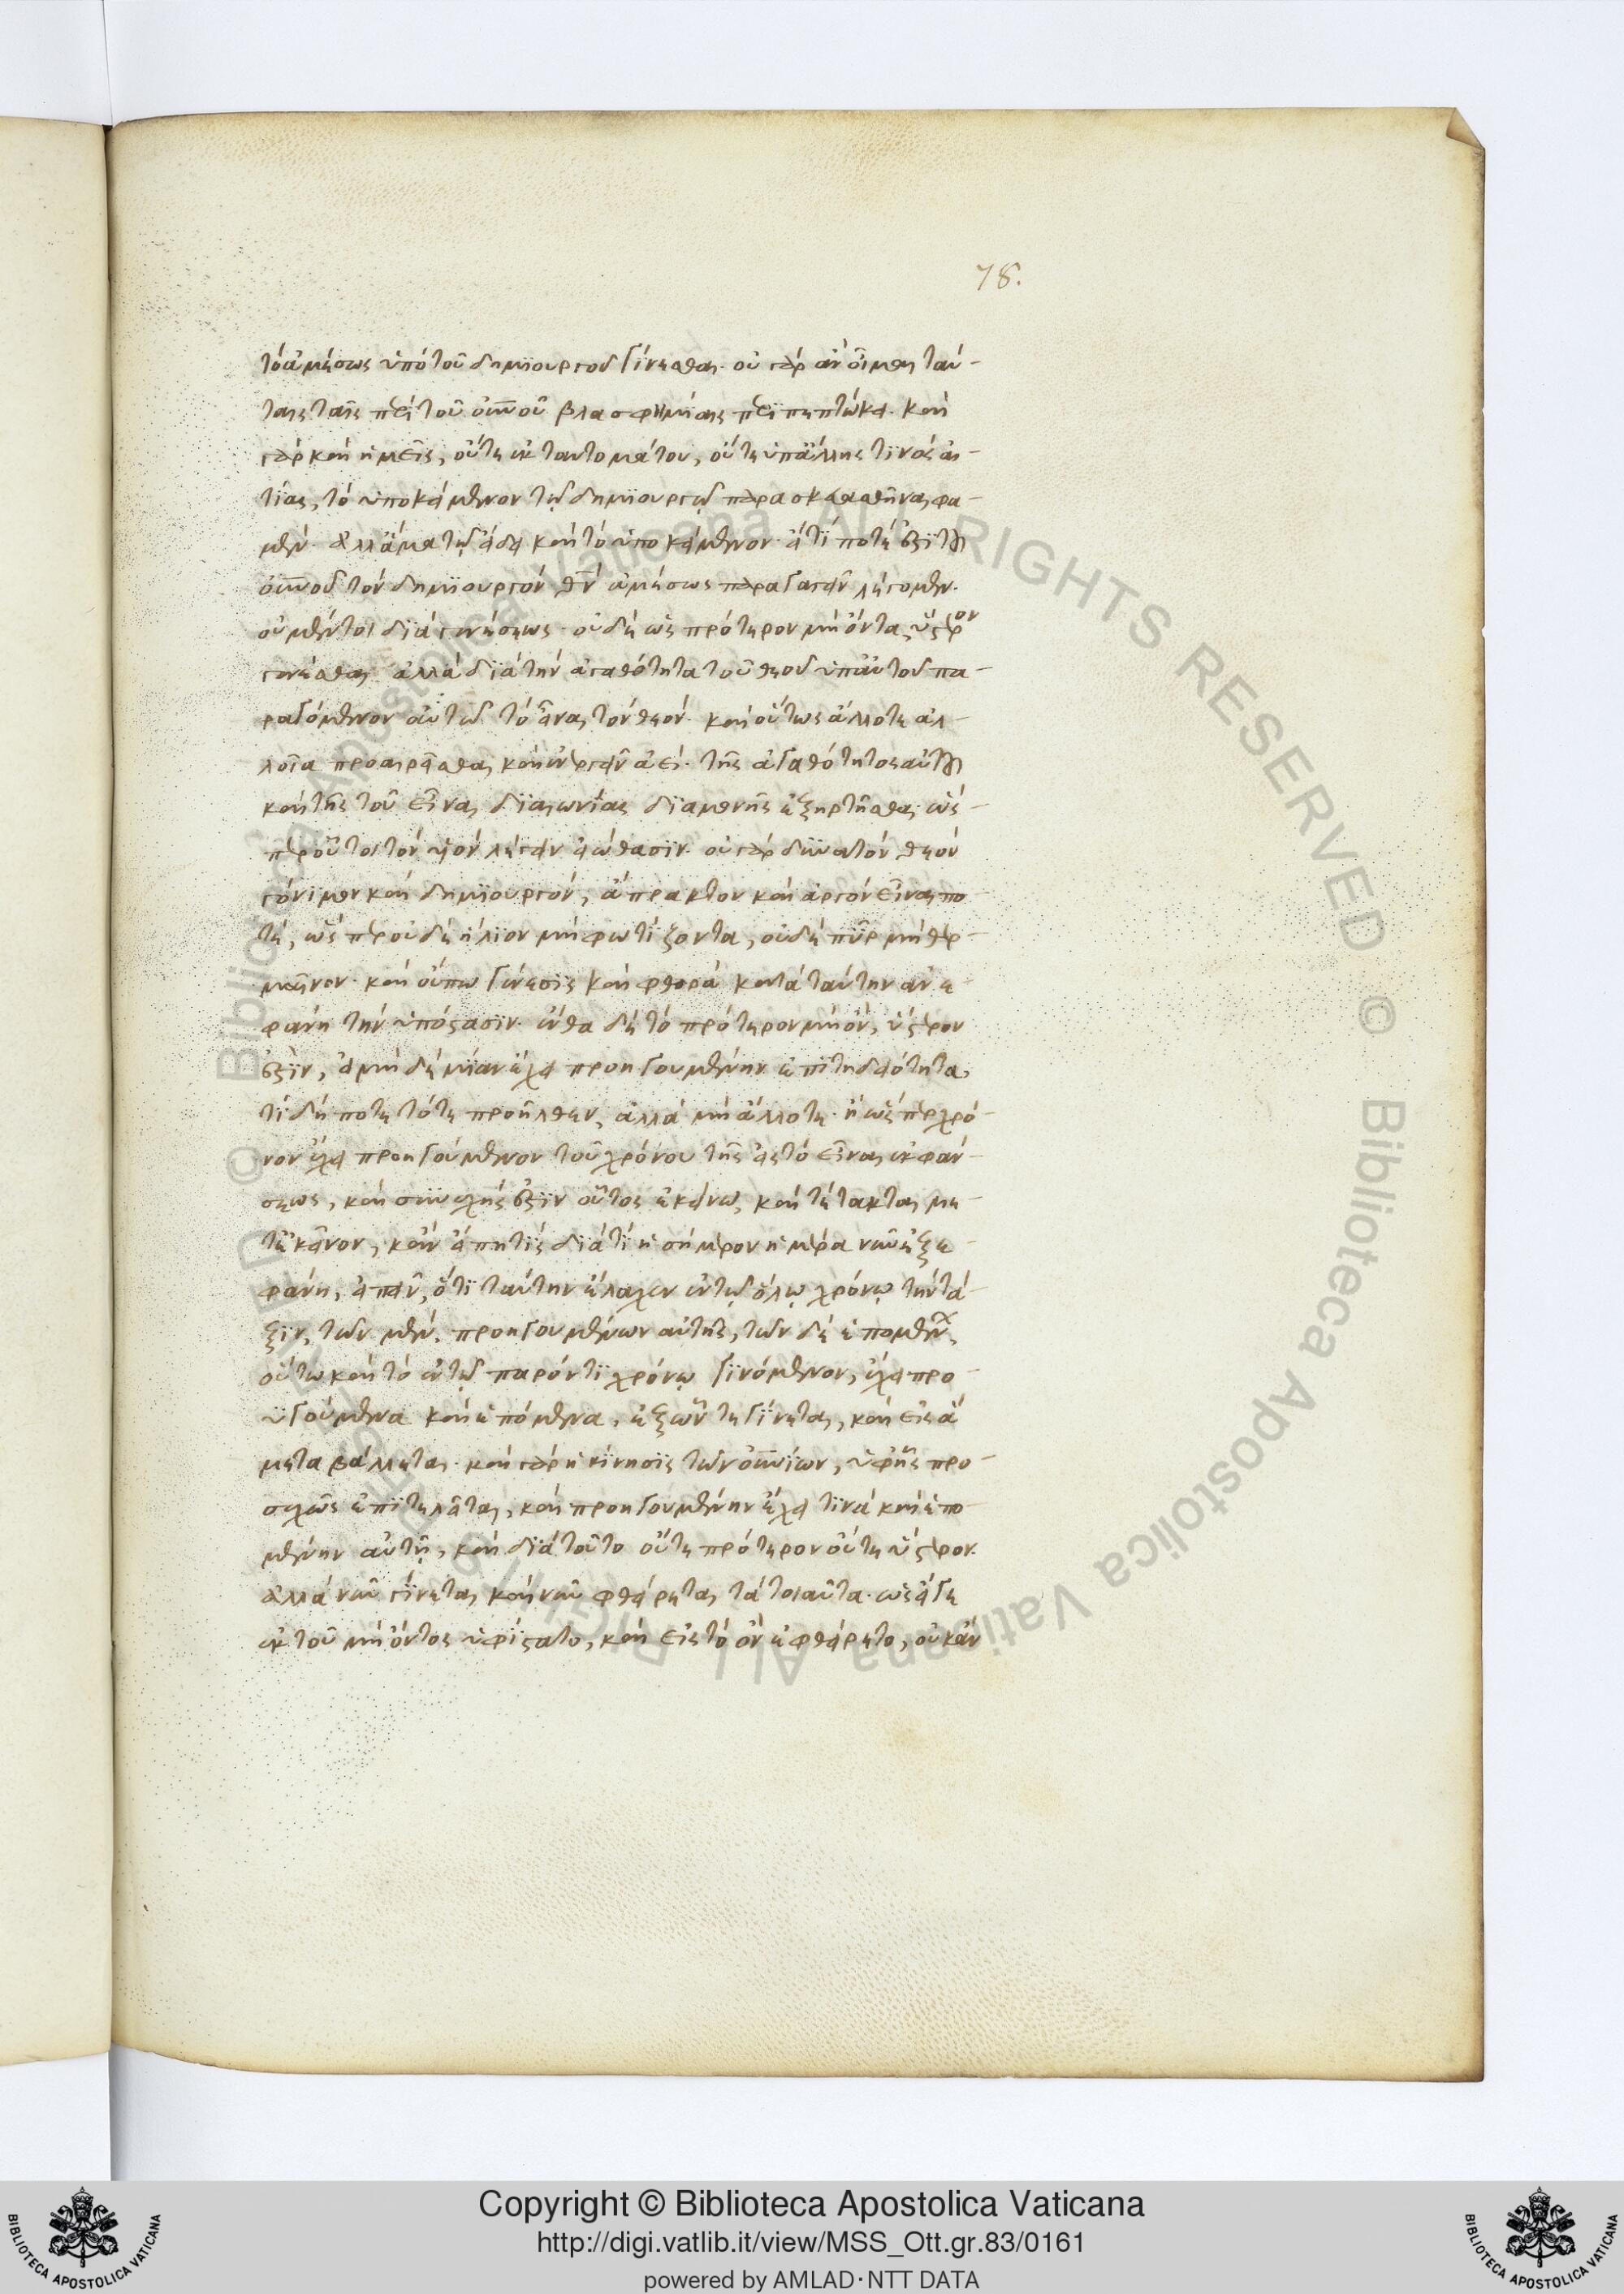 78.
τὸ ἀμέσως ὑπὸ τοῦ δημϊουργοῦ γίνεσθαι. οὐ γὰρ ἂν οἶμαι ταύ-
ταις ταῖς περὶ τοῦ οὐνοῦ βλασφημίαις περιπεπτώκει. καὶ
γὰρ καὶ ἡμεῖς, οὔτε ἐκ ταυτομάτου, οὔτε ὑπ' ἄλλης τινὸς αἰ-
τίας, τὸ ὑποκείμενον τῷ δημϊουργῷ παρασκευασθῆναι φα-
μέν. ἀλλ' ἅμα τῷ εἴδει καὶ τὸ ὑποκείμενον. εἴ τί ποτέ ἐστϊ τοῦ
οὐνοῦ τὸν δημϊουργὸν θν ἀμέσως παραγαγεῖν λέγομεν.
οὐ μέντοι διὰ γενέσεως. οὐδὲ ὡς πρότερον μὴ ὄντα, ὕστερον
γενέσθαι. ἀλλὰ διὰ τὴν ἀγαθότητα τοῦ θεοῦ ὑπ' αὐτοῦ πα-
ραγόμενον αὐτῷ τὸ εἶναι τὸν θεόν. καὶ οὕτως ἄλλοτε ἀλ-
λοῖα προαιρεῖσθαι καὶ ἐνεργεῖν ἀεὶ. τῆς ἀγαθότητος αὐτοῦ
καὶ τῆς τοῦ εἶναι διαιωνίας διαμονῆς ἐξηρτῆσθαι ὡς-
περ οὗτοι τὸν υἱὸν λέγειν εἰώθασϊν. οὐ γὰρ δϋνατὸν θεὸν
γόνϊμον καὶ δημϊουργόν, ἄπρακτον καὶ ἀργὸν εἶναι πο-
τέ, ὥς περ οὐδὲ ἥλϊον μὴ φωτίζοντα, οὐδὲ πῦρ μὴ θερ-
μαῖνον. καὶ οὔπω γένεσϊς καὶ φθορὰ κατὰ ταύτην ἀνε-
φάνη τὴν ὑπόστασϊν. ἔνθα δὲ τὸ πρότερον μὴ ὄν, ὕστερον
ἐστϊν, εἰ μηδὲ μίαν ἔχει προηγουμένην ἐπϊτηδειότητα,
τί δή ποτε τότε προῆλθεν, ἀλλὰ μὴ ἄλλοτε. ἢ ὥς περ χρό-
νον ἔχει προηγούμενον τοῦ χρόνου τῆς εἰς τὸ εἶναι ἐκφάν-
σεως, καὶ συνεχής ἐστϊν οὗτος ἐκείνω, καὶ τέτακται με-
τ' ἐκεῖνον, κἂν εἴπῃ τίς διὰ τί ἡ σήμερον ἡμέρα νῦν ἐξε-
φάνη, εἰπεῖν, ὅτϊ ταύτην ἔλαχεν ἐν τῷ ὅλῳ χρόνῳ τὴν τά-
ξϊν, τῶν μὲν, προηγουμένων αὐτῆς, τῶν δὲ ἑπομένων,
οὕτω καὶ τὸ ἐν τῷ παρόντϊ χρόνῳ γϊνόμενον, ἔχει προ-
ηγούμενα καὶ ἑπόμενα, ἐξ ὧν τε γίνεται, καὶ εἰς ἃ
μεταβάλλεται. καὶ γὰρ ἡ κίνησϊς τῶν οὐνίων, ὑφ' ἧς προ-
σεχῶς ἐπϊτελεῖται, καὶ προηγουμένην ἔχει τϊνά καὶ ἑπο-
μένην αὐτῇ, καὶ διὰ τοῦτο οὔτε πρότερον οὔτε ὕστερον.
ἀλλὰ νῦν γίνεται καὶ νῦν φθείρεται τὰ τοιαῦτα. ὡς εἴγε
ἐκ τοῦ μὴ ὄντος ὑφίστατο, καὶ εἰς τὸ ὂν ἐφθείρετο, οὐκ ἂν
Copyright © Biblioteca Apostolica Vaticana
http://digi.vatlib.it/view/MSS_Ott.gr.83/0161
powered by AMLAD·NTT DATA